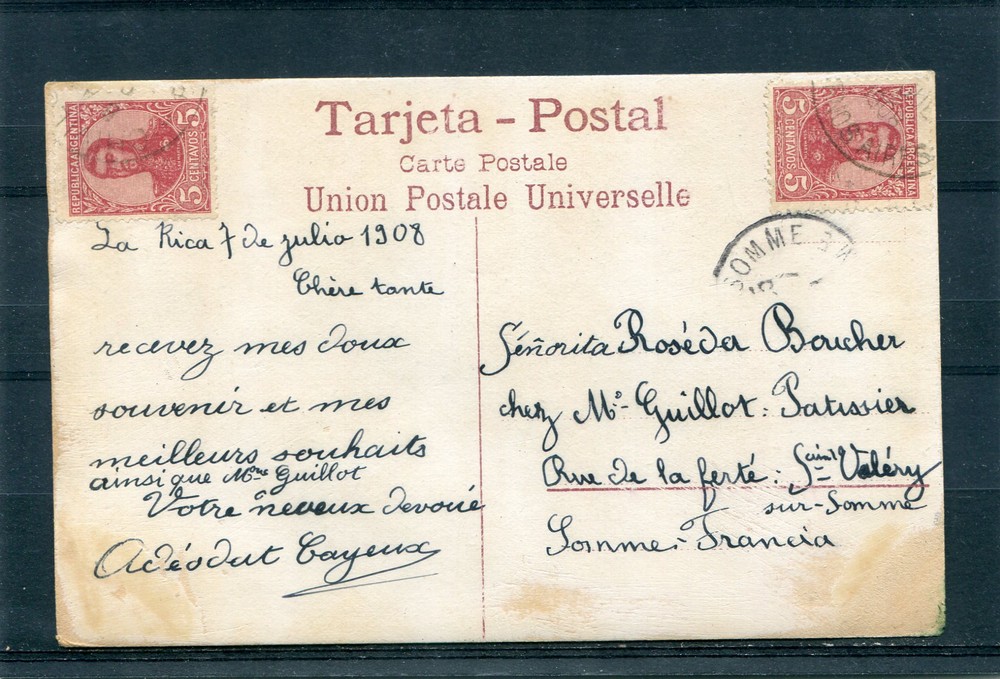 Tarjeta - Postal
Carte Postale
Union Postale Universelle
REPUBLICA ARGENTINA
5
CENTAVOS
5
5
CENTAVOS
5
REPUBLICA ARGENTINA
SOMME
La Rica 7 de julio 1908
Chère tante
recevez mes doux
souvenir et mes
meilleurs souhaits
ainsi que Mme Guillot
Votre neveux devoué
Adéodat Cayeux
Séñorita Roséda Boucher
chez Mr Guillot. Patissier
Rue de la ferté: Saint Valéry
sur-Somme
Somme. Francia